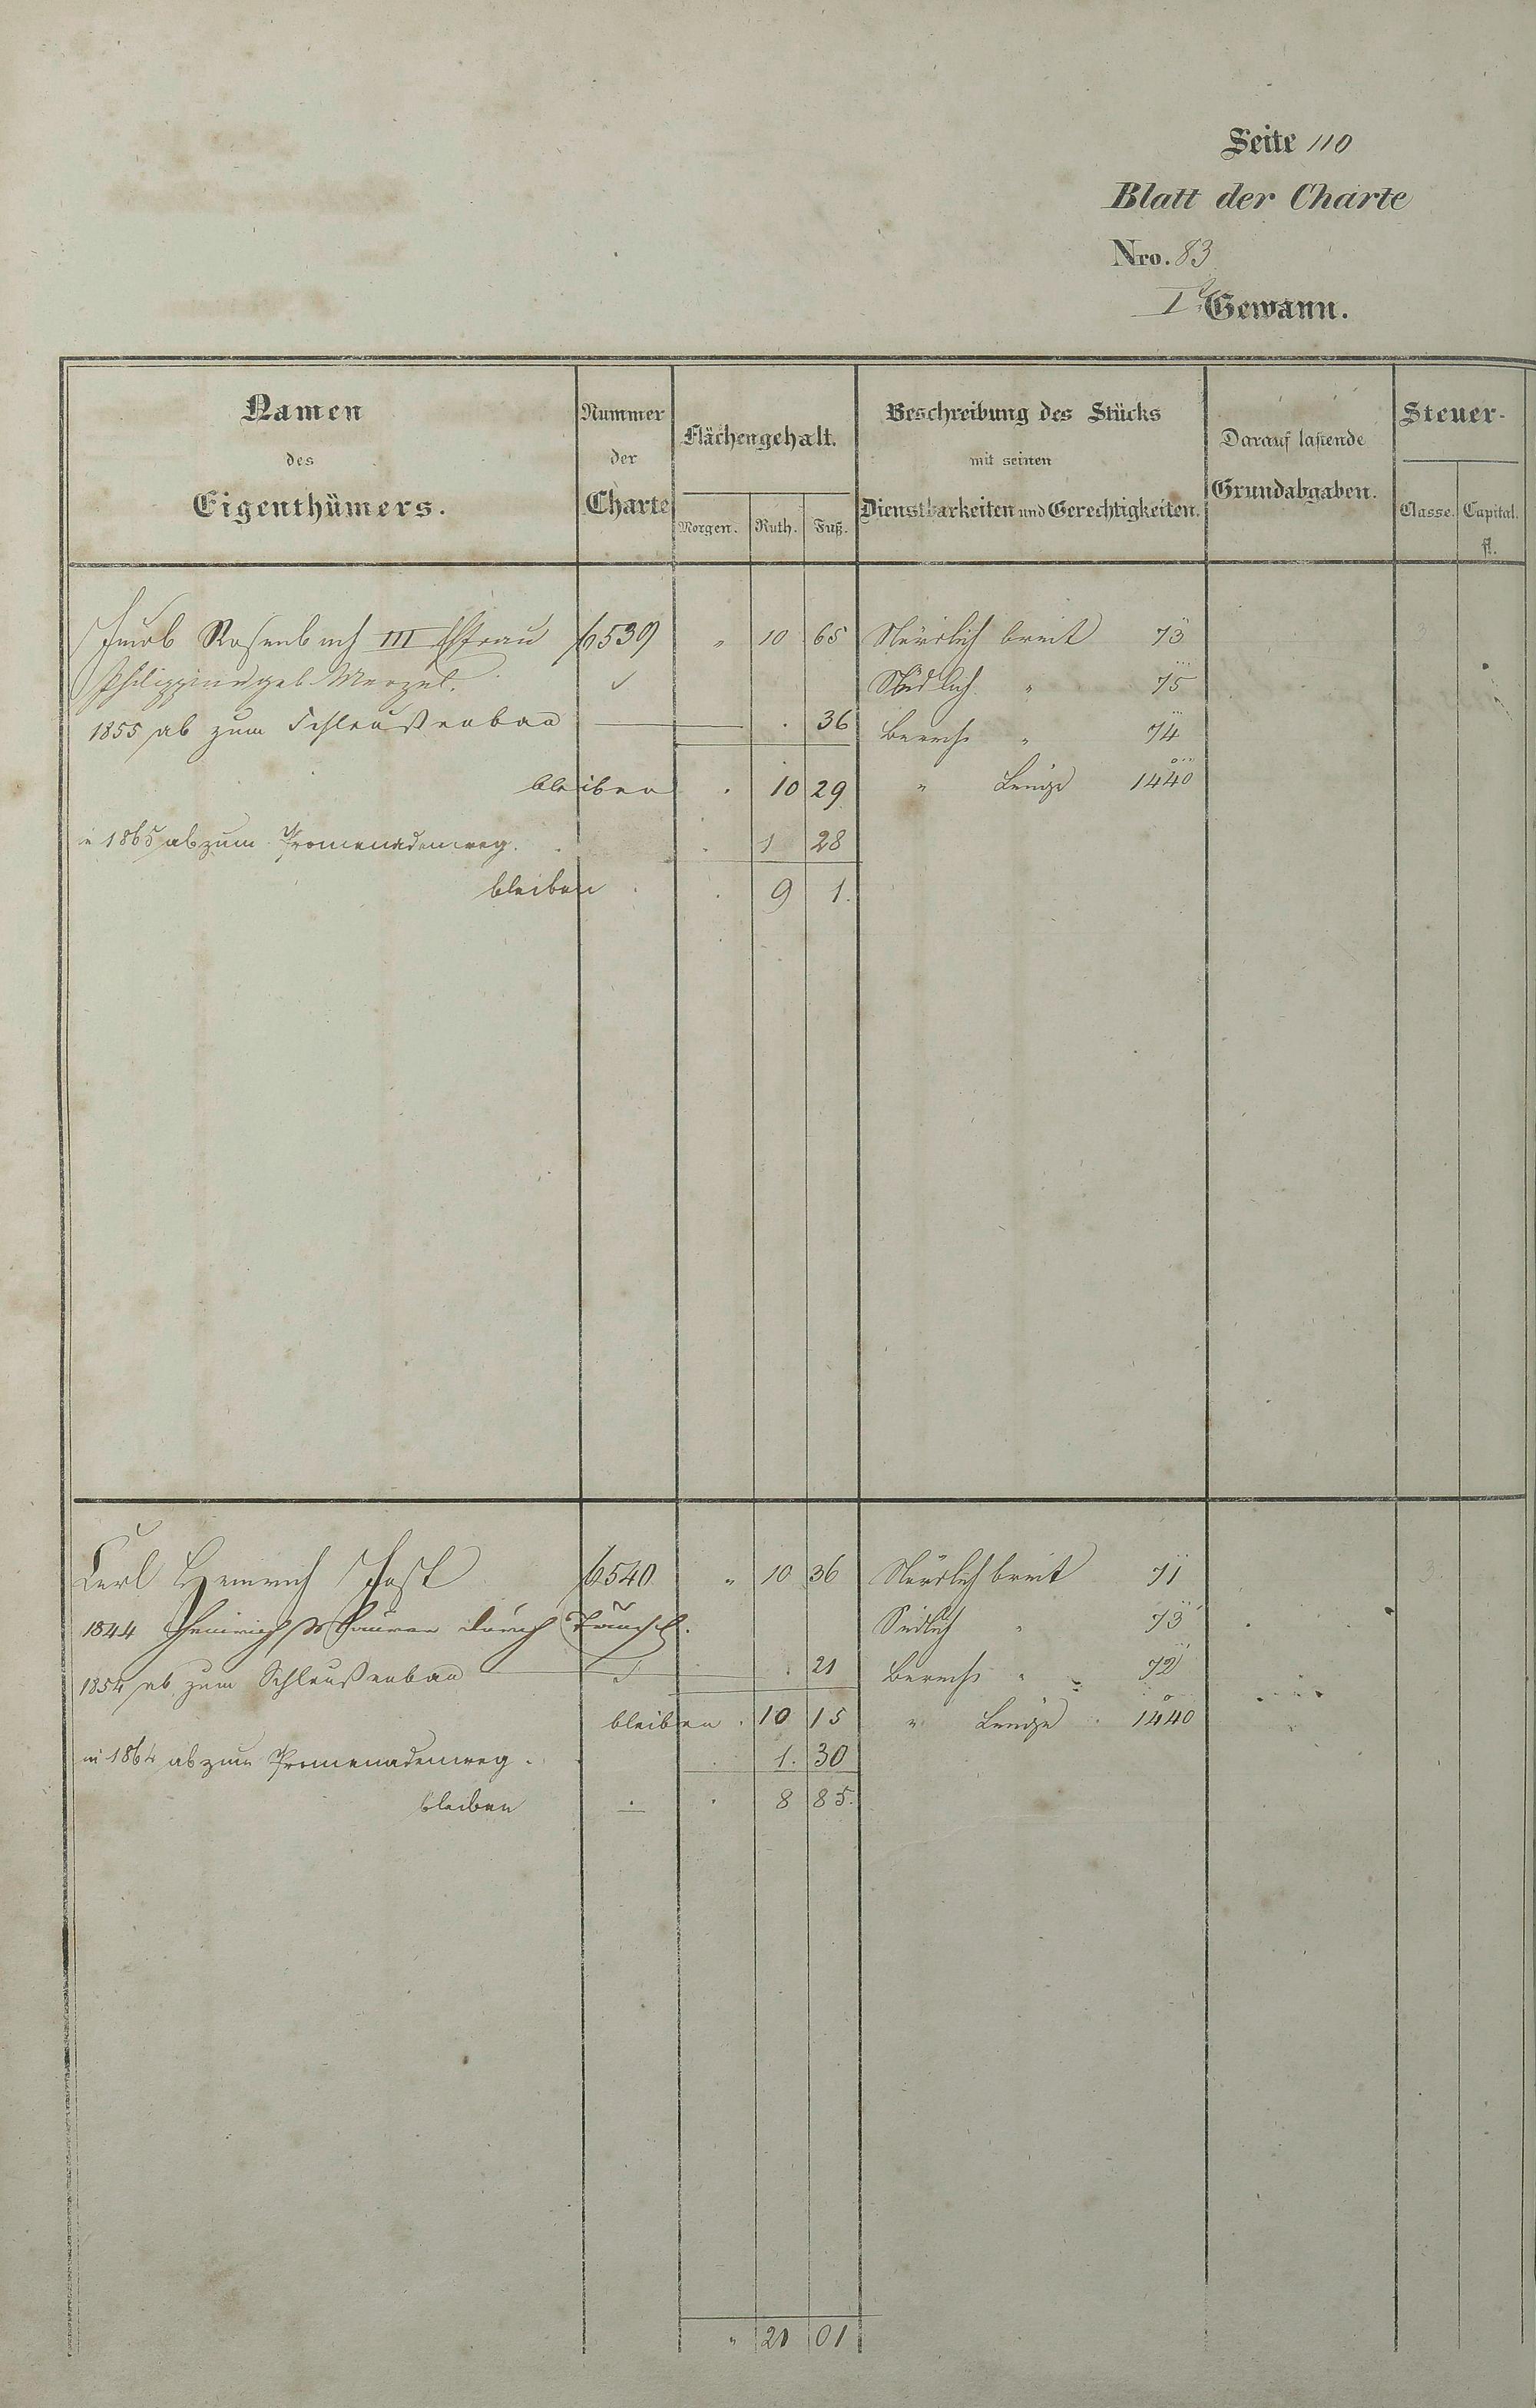 Seite 110
Blatt der Charte
Nro. 83
I. Gewann.
Namen des Eigenthümers.
Nummer der Charte
Flächengehalt.
Morgen. Ruth. Fuß.
Beschreibung des Stücks mit seinen Dienstbarkeiten und Gerechtigkeiten.
Darauf lastende Grundabgaben.
Steuer-
Classe. Capital. fl.
Jacob Rosenbach III Ehfrau 6539 " 10 65 Nördlich breit 73 3
Philippine geb. Menzel. Südlich " 75
1855 ab zum Schleußenbau . 36 Berech " 74
bleiben . 10 29 " Länge 1440
in 1865 ab zum Promenadenweg. . 1 28
bleiben . 9 1.
Carl Heinrich Jost 6540 " 10 36 Nördlich breit 71 3
1844 Heinrich durch Tausch. Südlich " 73
1854 ab zum Schleußenbau . 21 Berech " 72
bleiben . 10 15 " Länge 1440
in 1864 ab zum Promenadenweg. . 1. 30
bleiben . 8 85.
" 21 01